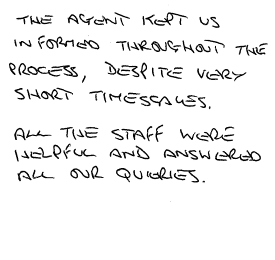 THE AGENT KEPT US
INFORMED THROUGHOUT THE
PROCESS, DESPITE VERY
SHORT TIMESCALES.
ALL THE STAFF WERE
HELPFUL AND ANSWERED
ALL OUR QUERIES.